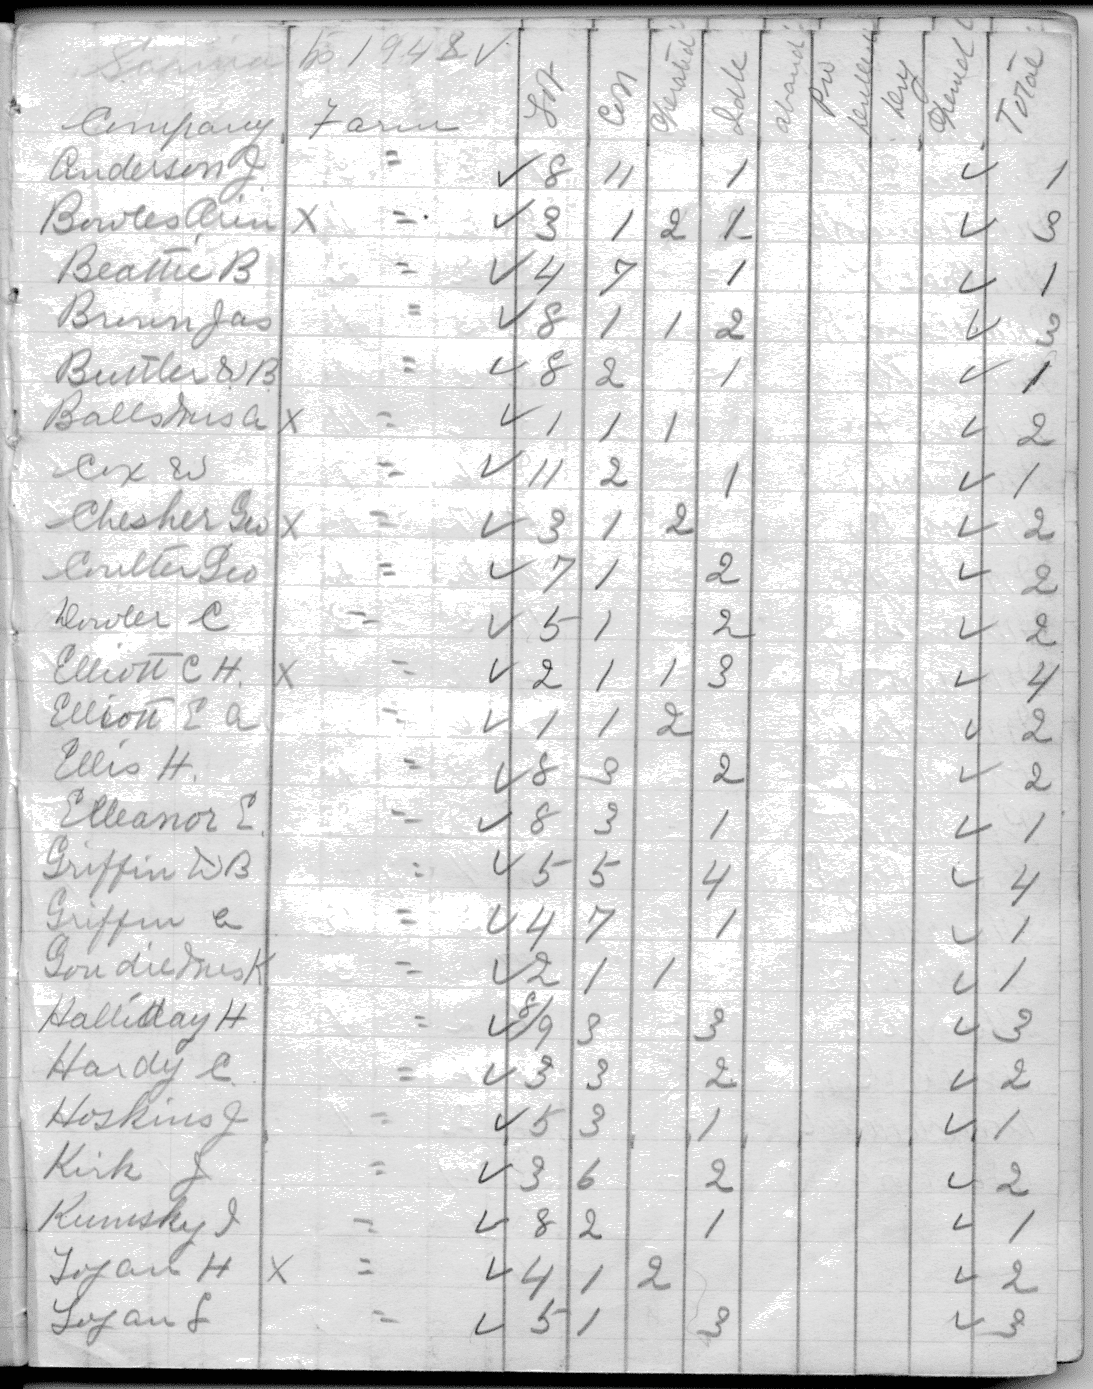 Sarnia to 1948 ✓
Company Farm Lot Con Operated Idle aband Pro Drilled Dry Opened Total
Anderson J. = ✓ 8 11 1 ✓ 1
Bowles X = ✓ 3 1 2 1 ✓ 3
Beattie B = ✓ 4 7 1 ✓ 1
Brown Jas = ✓ 8 1 1 2 ✓ 3
Buttler W B = ✓ 8 2 1 ✓ 1
Balls Mrs a X = ✓ 1 1 1 ✓ 2
Cox W = ✓ 11 2 1 ✓ 1
Chesher Geo X = ✓ 3 1 2 ✓ 2
Coulter Geo = ✓ 7 1 2 ✓ 2
Dowler C = ✓ 5 1 2 ✓ 2
Elliott C H. X = ✓ 2 1 1 3 ✓ 4
Elliott E a = ✓ 1 1 2 ✓ 2
Ellis H. = ✓ 8 3 2 ✓ 2
Elleanor E. = ✓ 8 3 1 ✓ 1
Griffin W B = ✓ 5 5 4 ✓ 4
Griffin a = ✓ 4 7 1 ✓ 1
Goudie Mrs K = ✓ 2 1 1 ✓ 1
Halliday H = ✓ 8/9 3 3 ✓ 3
Hardy C. = ✓ 3 3 2 ✓ 2
Hoskins J = ✓ 5 3 1 ✓ 1
Kirk J = ✓ 3 6 2 ✓ 2
Kumsky J = ✓ 8 2 1 ✓ 1
Logan H X = ✓ 4 1 2 ✓ 2
Logan S = ✓ 5 1 3 ✓ 3